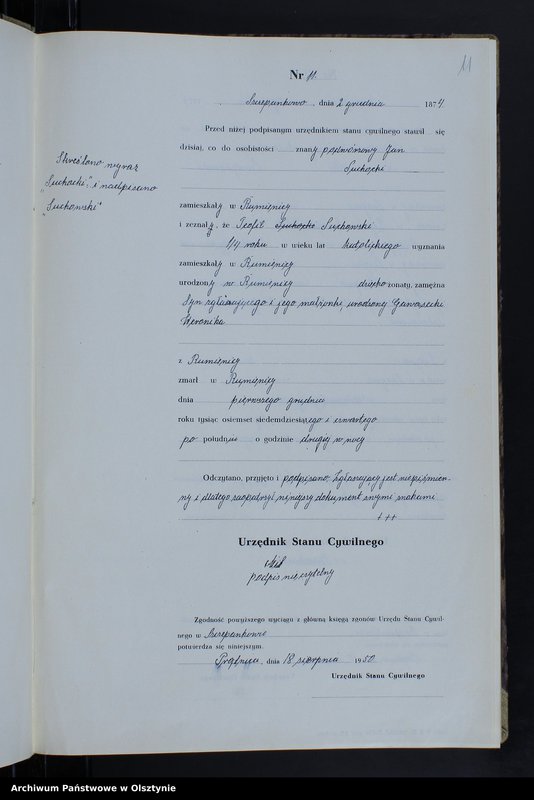 11
Nr 11
Szczepankowo, dnia 2 grudnia 1874.
Przed niżej podpisanym urzędnikiem stanu cywilnego stawił się
dzisiaj, co do osobistości znany podwórzowy Jan
Suchocki
Skreślono wyraz
„Suchocki” i nadpisano
„Suchowski”
zamieszkały w Rumienicy
i zeznał, że Teofil Suchocki Suchowski
1/4 roku w wieku lat katolickiego wyznania
zamieszkały w Rumienicy
urodzony w Rumienicy dziecko żonaty, zamężna
Syn zgłaszającego i jego małżonki, urodzonej
Weronika
z Rumienicy
zmarł w Rumienicy
dnia pierwszego grudnia
roku tysiąc osiemset siedemdziesiątego i czwartego
po południu o godzinie drugiej w nocy
Odczytano, przyjęto i podpisano, Zgłaszający jest niepiśmien-
ny i dlatego zaopatrzył niniejszy dokument swymi znakami
+++
Urzędnik Stanu Cywilnego
podpis nieczytelny
Zgodność powyższego wyciągu z główną księgą zgonów Urzędu Stanu Cywil-
nego w Szczepankowo
potwierdza się niniejszym.
Prątnica, dnia 18 sierpnia 1950
Urzędnik Stanu Cywilnego
Archiwum Państwowe w Olsztynie